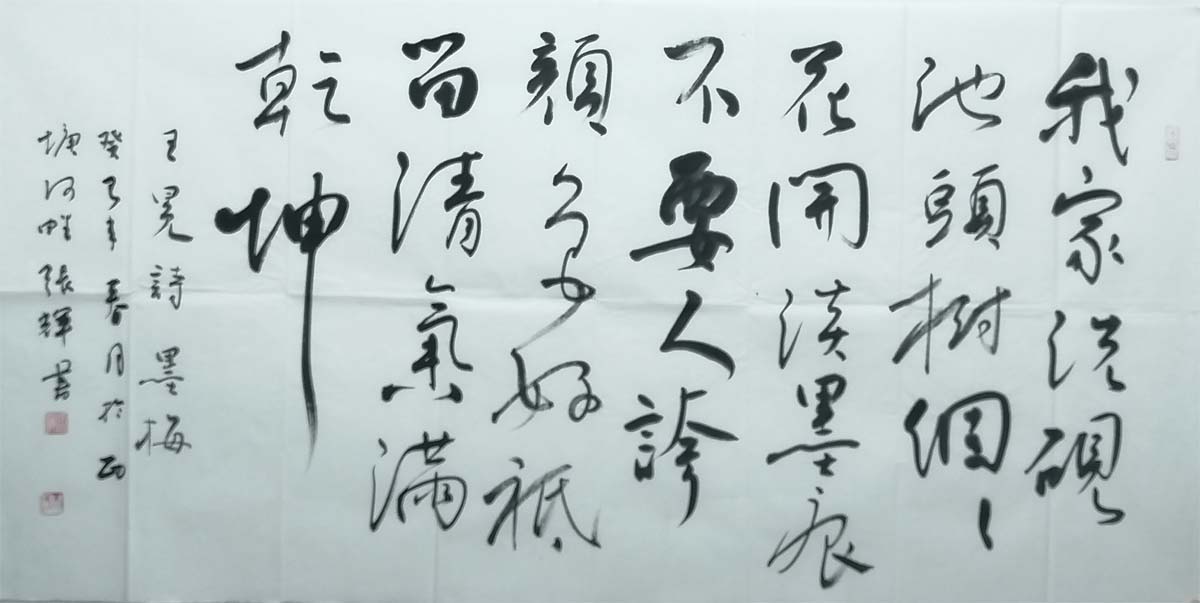 我家洗硯
池頭樹個〻
花開淡墨痕
不要人誇
顏色好祗
留清氣滿
乾坤
王冕詩墨梅
癸巳年春月於西
塘河畔張輝書